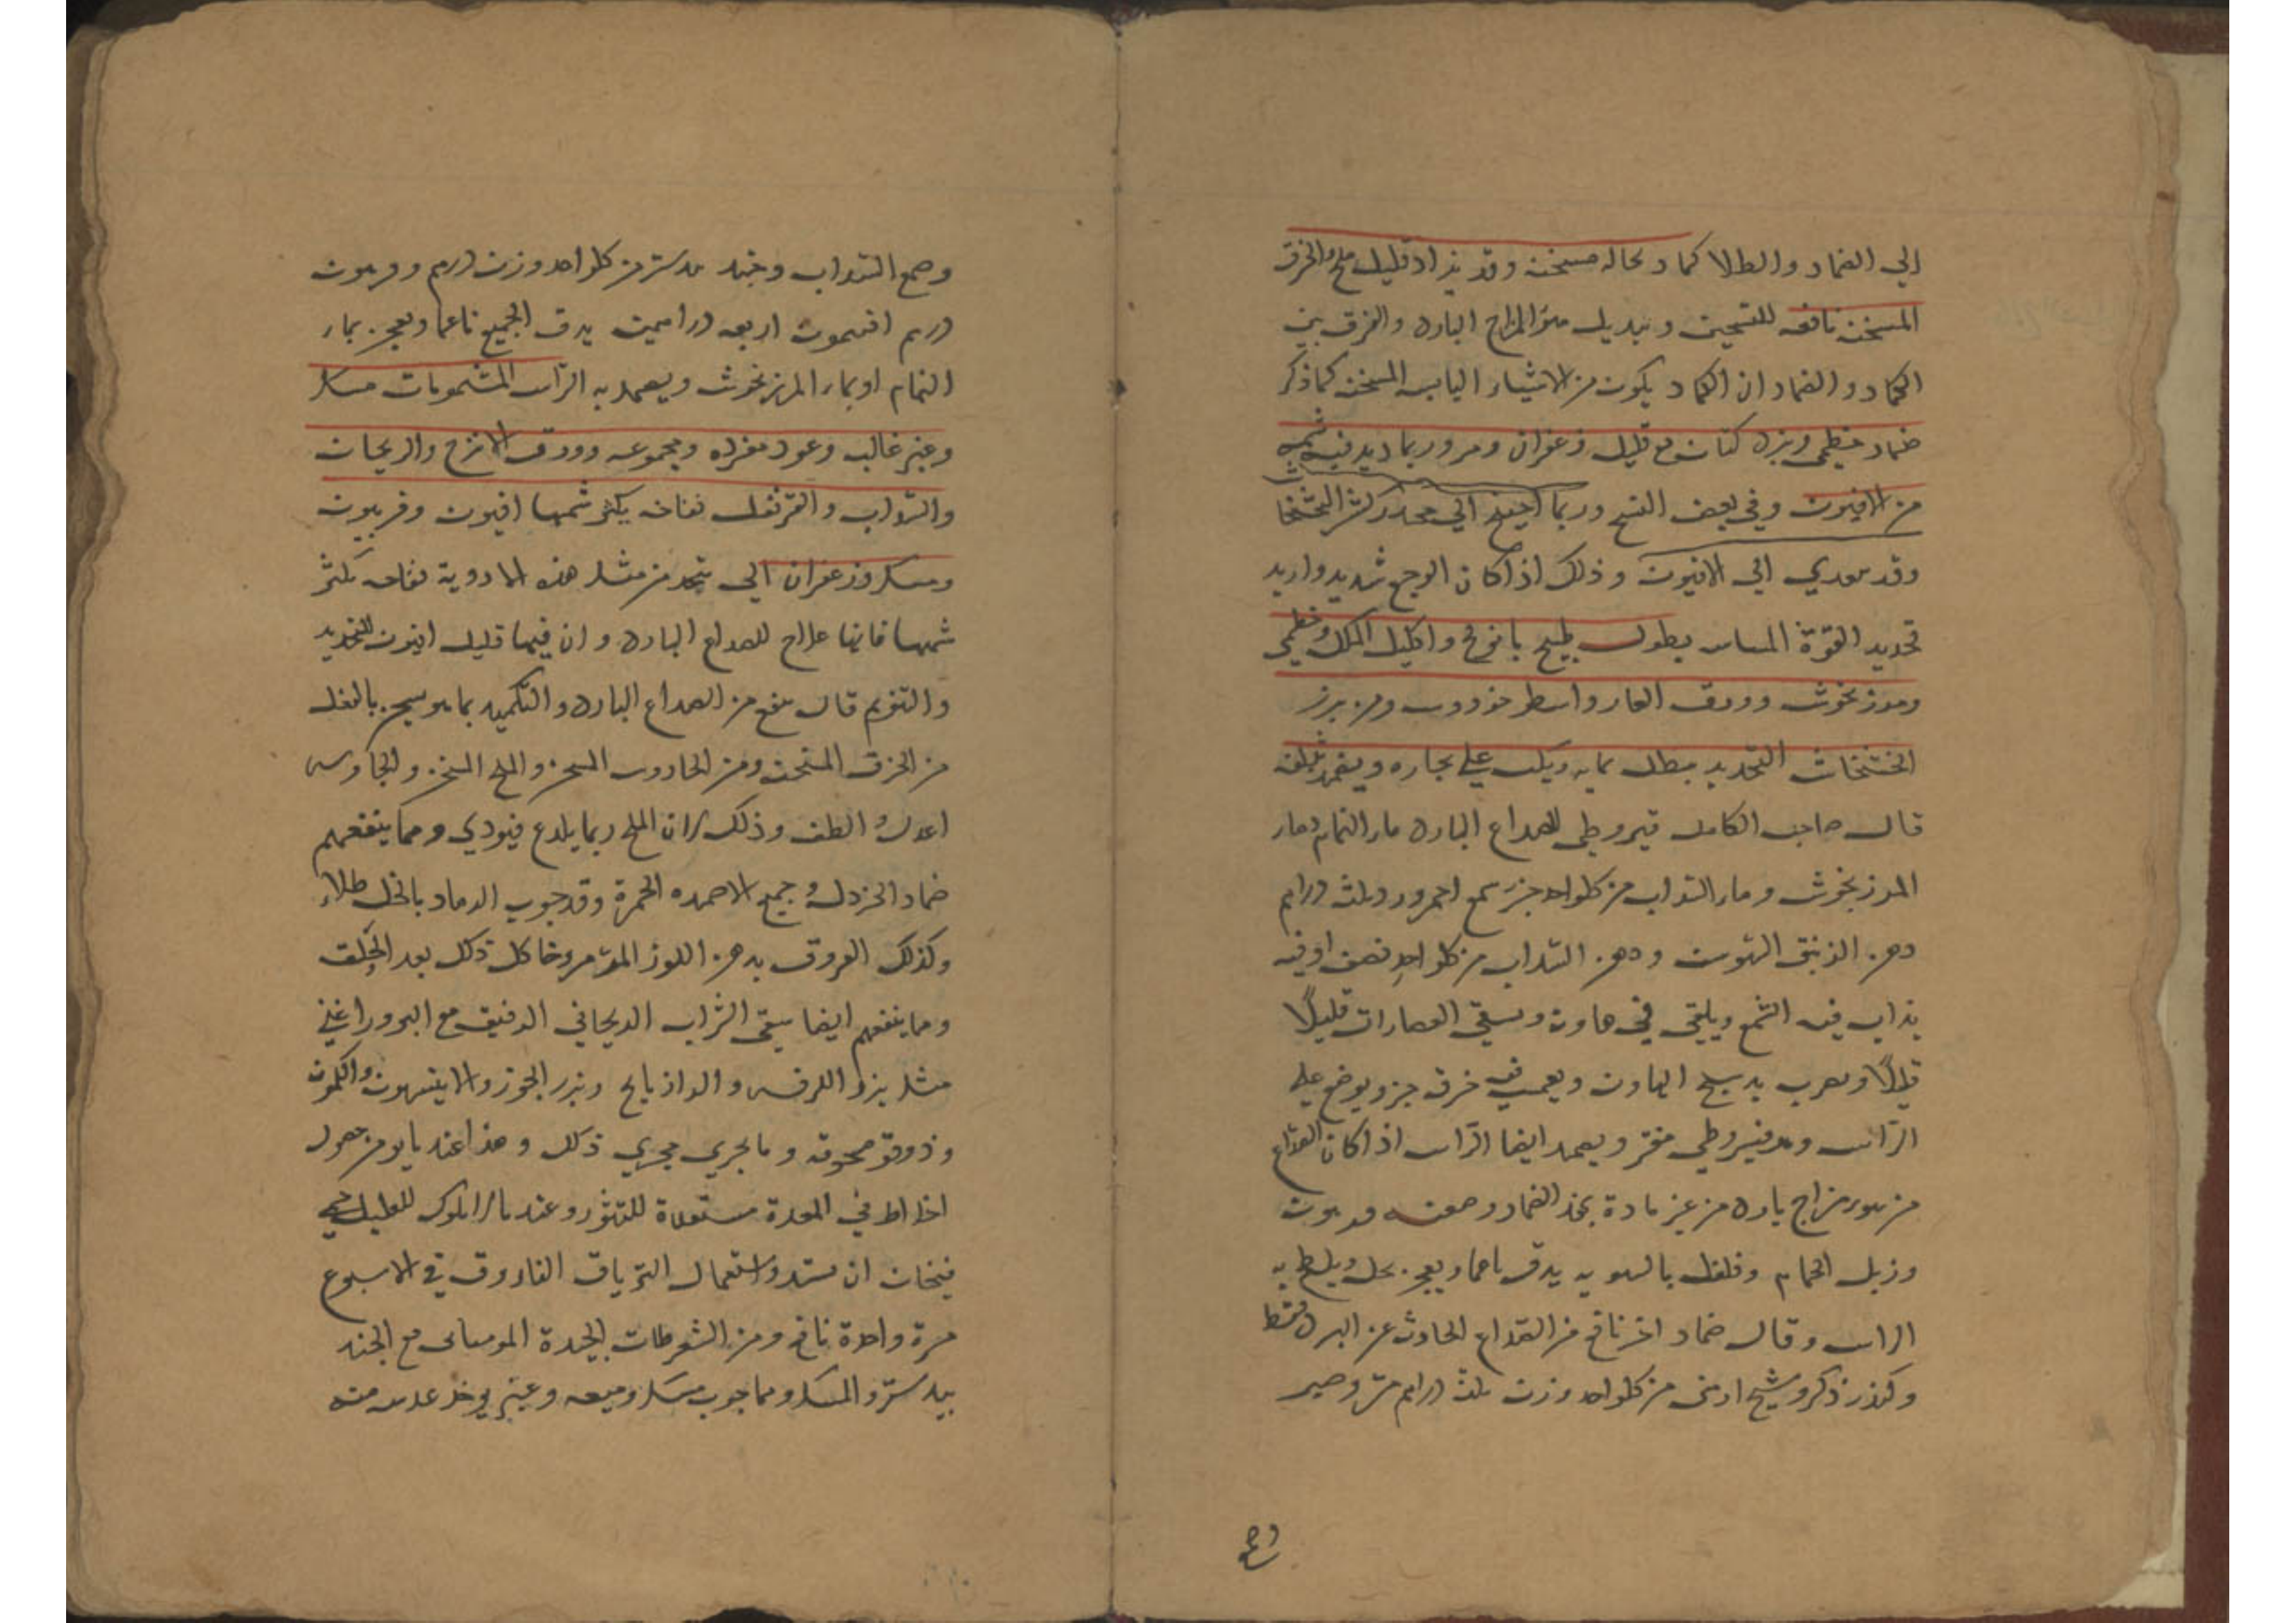 الي الضماد والطلا كماد نخاله مسخنه وقد يزاد قليل ملح والخرق
المسخنه نافعه للتسخين وتبديل سؤ المزاج البارد والفرق بين
الكماد والضماد ان الكماد يكون من الاشياء اليابسه المسخنه كما ذكر
ضماد خطمى وبزر كتان مع قليل زعفران ومر وربما زيد فيه شمه
من الافيون وفي بعض النسخ وربما احتيج الي مخدر كقشر الخشخاش
وقد يتعدي الي الافيون وذلك اذا كان الوجع شديد واريد
تخدير القوة الحساسه نطول طبيخ بابونج واكليل الملك وخطمى
ومرزنجوش وورق الغار واسطوخودوس ومن بزر
الخشخاش التخدير ينطل بمايه ويكب علي بخاره ويضمد بثفله
قال صاحب الكامل قيروطي للصداع البارد ماء النمام وماء
المرزنجوش وماء السداب من كل واحد جزء شمع احمر وزن ثلث دراهم
دهن الزنبق السوسن ودهن السداب من كل واحد نصف اوقيه
يذاب فيه الشمع ويلقي في هاون ويسقى العصارات قليلًا
قليلًا ويضرب بدستج الهاون ويغمس فيه خرق خز ويوضع علي
الراس وهو قيروطي مفتر ويضمد ايضا الراس اذا كان الصداع
من سوء مزاج بارد من غير مادة بهذا الضماد وصفته فربيون
وزبل الحمام وفلفل بالسويه يدق ناعما ويعجن بخل ويلطخ به
الراس وقال ضماد اخر نافع من الصداع الحادث عن البرد فقط
وكندر ذكر وشيح ارمنى من كل واحد وزن ثلث دراهم مر وصبر
وصمغ السداب وجند بيدستر من كل واحد وزن درهم وفربيون
درهم افتيمون اربعه دراهم يدق الجميع ناعما ويعجن بماء
النمام او بماء المرزنجوش ويضمد به الراس المشمومات مسك
وعنبر غاليه وعود مفرده ومجموعه وورق الاترج والريحان
والسداب والقرنفل نفاحه يكثر شمها افيون وفربيون
ومسك وزعفران الي يتخذ من مثل هذه الادوية نفاحه يكثر
شمها فانها علاج للصداع البارد وان فيها قليل افيون للتخدير
والتنويم قال ينفع من الصداع البارد والتكميد بما يسخن بالفعل
من الخرق المسخنه ومن الجاورس المسخن والملح المسخن والجاورس
اعدل والطف وذلك لان الملح ربما يلدع فيوذي ومما ينفعهم
ضماد الخردل وجميع الاضمده المحمرة وقد جرب الرماد بالخل طلاء
وكذلك العروق بدهن اللوز المر مروخا كل ذلك بعد الحلق
ومما ينفعهم ايضا سقى الشراب الريحاني الرقيق مع البزور اعني
مثل بزر الكرفس والرازيانج وبزر الجزر والانيسون والكمون
وذوقو مسحوقه وما يجري مجري ذلك وهذا عند ما يومن حصول
اخلاط في المعدة مستعدة للتثور وعند ما لا يكون للعليل حمي
فيخاف ان تشتد واستعمال الترياق الفاروق في الاسبوع
مرة واحدة نافع ومن الشعرطات الجيدة الموميائى مع الجند
بيدستر والمسك ومما جرب مسك وميعه وعنبر يوخذ عدسه منه